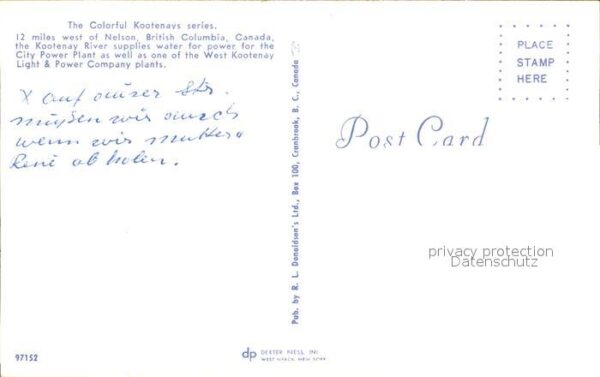 The Colorful Kootenays series.
12 miles west of Nelson, British Columbia, Canada,
the Kootenay River supplies water for power for the
City Power Plant as well as one of the West Kootenay
Light & Power Company plants.
X auf dieser Str.
müßen wir durch
wenn wir Mutter u
René abholen.
Pub. by R. L. Donaldson's Ltd., Box 100, Cranbrook, B. C., Canada
PLACE
STAMP
HERE
Post Card
privacy protection
Datenschutz
97152
dp DEXTER PRESS, INC
WEST NYACK, NEW YORK